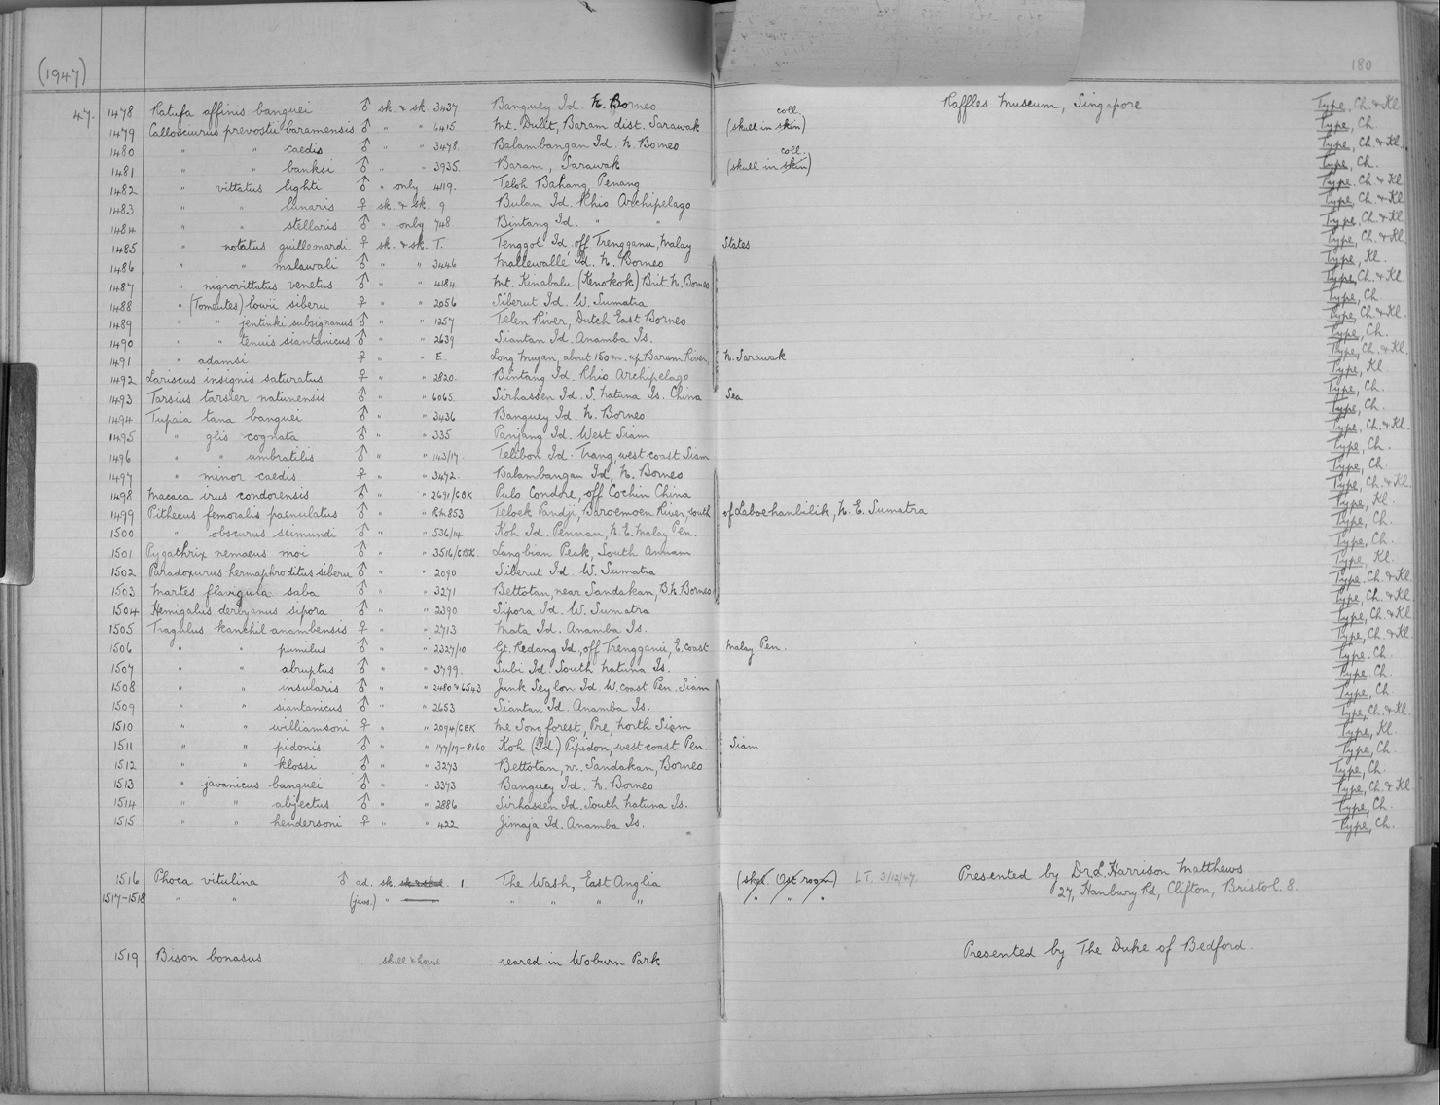 (1947)
180
47. 1478 Ratufa affinis banguei ♂ sk. & sk. 3437 Banguey Id. N. Borneo Raffles Museum, Singapore Type, Ch. & Kl
1479 Callosciurus prevostii baramensis ♂ " " 6415 Mt. Dulit, Baram dist. Sarawak (skull in skin) coll Type, Ch.
1480 " " caedis ♂ " " 3478. Balambangan Id. N. Borneo Type, Ch. & Kl.
1481 " " banksi ♂ " " 3935. Baram, Sarawak (skull in skin) coll. Type, Ch.
1482 " vittatus lighti ♂ " only 4119. Teloh Bahang, Penang Type. Ch. & Kl
1483 " " lunaris ♀ sk. & sk. 9 Bulan Id. Rhio Archipelago Type, Ch. & Kl
1484 " " stellaris ♂ " only 748 Bintang Id. " " Type, Ch. & Kl
1485 " notatus guillemardi ♀ sk. & sk. T. Tenggol Id. off Trengganu, Malay States Type, Ch. & Kl
1486 " " malawali ♂ " " 3446 Mallewallé Id. N. Borneo Type, Kl.
1487 " nigrovittatus venetus ♂ " " 4184 Mt. Kinabalu (Kenokok) Brit. N. Borneo Type, Ch. & Kl
1488 " (Tomeutes) lowii siberu ♀ " " 2056 Siberut Id. W. Sumatra Type, Ch.
1489 " " jentinki subsignanus ♂ " " 1257 Telen River, Dutch East Borneo Type, Ch. & Kl.
1490 " " tenuis siantanicus ♂ " " 2639 Siantan Id. Anamba Is. Type, Ch.
1491 " adamsi ♀ " " E. Long Mujan, about 150 m. up Baram River, N. Sarawak Type, Ch. & Kl
1492 Lariscus insignis saturatus ♀ " " 2820. Bintang Id. Rhio Archipelago Type, Kl
1493 Tarsius tarsier natunensis ♂ " " 6065. Sirhassen Id. S. Natuna Is. China Sea Type, Ch.
1494 Tupaia tana banguei ♂ " " 3436 Banguey Id. N. Borneo Type, Ch.
1495 " glis cognata ♂ " " 335 Panjang Id. West Siam Type, Ch. & Kl.
1496 " " umbratilis ♂ " " 143/17. Telibon Id. Trang, west coast Siam Type, Ch.
1497 " minor caedis ♀ " " 3472. Balambangan Id, N. Borneo Type, Ch.
1498 Macaca irus condorensis ♂ " " 2691/CBK Pulo Condore, off Cochin China Type, Ch. & Kl.
1499 Pithecus femoralis painulatus ♂ " " 853 Telock Pandji, Baroemoen River, south of Laboehanbilik, N. E. Sumatra Type, Kl.
1500 " obscurus seimundi ♂ " " 536/14 Koh Id. Pennan, N. E. Malay Pen. Type, Ch.
1501 Pygathrix nemaeus moi ♂ " " 3516/CBK. Langbian Peak, South Annam Type, Ch.
1502 Paradoxurus hermaphroditus siberu ♂ " " 2090 Siberut Id. W. Sumatra Type, Kl.
1503 Martes flavigula saba ♂ " " 3271 Bettotan, near Sandakan, B. N. Borneo Type. Ch. & Kl
1504 Hemigalus derbyanus sipora ♂ " " 2390 Sipora Id. W. Sumatra Type, Ch. & Kl
1505 Tragulus kanchil anambensis ♀ " " 2713 Mata Id. Anamba Is. Type, Ch. & Kl
1506 " " pumilus ♂ " " 2327/10 Gt. Redang Id., off Trengganu, E. coast Malay Pen. Type, Ch. & Kl
1507 " " abruptus ♂ " " 3799. Subi Id. South Natuna Is. Type. Ch.
1508 " " insularis ♂ " " 2480 & 6543 Junk Seylon Id. W. coast Pen. Siam Type, Ch.
1509 " " siantanicus ♂ " " 2653 Siantan Id. Anamba Is. Type, Ch.
1510 " " williamsoni ♀ " " 2094/CBK Me Song forest, Pre, North Siam Type, Ch. & Kl.
1511 " " pidonis ♂ " " Koh (Id) Pipidon, west coast Pen Siam Type, Kl.
1512 " " klossi ♂ " " 3273 Bettotan, nr. Sandakan, Borneo Type, Ch.
1513 " javanicus banguei ♂ " " 3373 Banguey Id. N. Borneo Type, Ch.
1514 " " abjectus ♂ " " 2886 Sirhassen Id. South Natuna Is. Type, Ch. & Kl
1515 " " hendersoni ♀ " " 422 Jimaja Id. Anamba Is. Type, Ch.
Type, Ch.
1516 Phoca vitulina ♂ ad. sk. 1. The Wash, East Anglia (skel. Ost. room) LT. 3/12/47. Presented by Dr L. Harrison Matthews
1517-1518 " " (juv.) " " " " " " " " 27, Hanbury Rd, Clifton, Bristol. 8.
1519 Bison bonasus skull & horns reared in Woburn Park Presented by The Duke of Bedford.